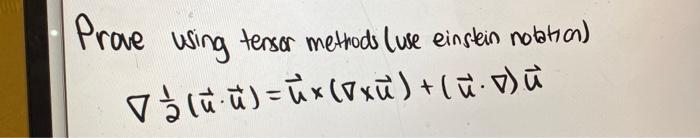 Prove using tensor methods (use einstein notation)
∇ ½(u⃗·u⃗) = u⃗×(∇×u⃗) + (u⃗·∇)u⃗